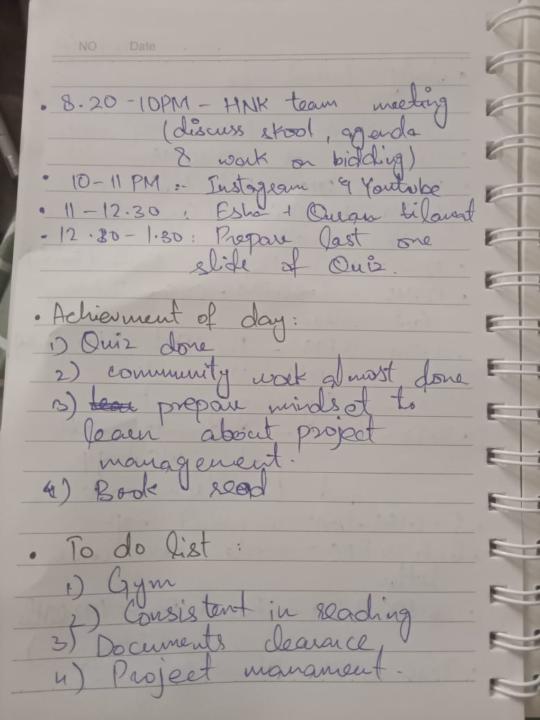 NO Date
• 8.20 - 10PM - HNK team meeting
(discuss skool, agenda
& work on bidding)
• 10-11 PM :- Instagram & Youtube
• 11 - 12.30 : Esha + Quran tilawat
- 12.30 - 1.30 : Prepare last one
slide of Quiz.
• Achievment of day :
1) Quiz done
2) community work almost done
3) prepare mindset to
learn about project
management.
4) Book read
• To do list :
1) Gym
2) Consistent in reading
3) Documents clearance
4) Project manament.